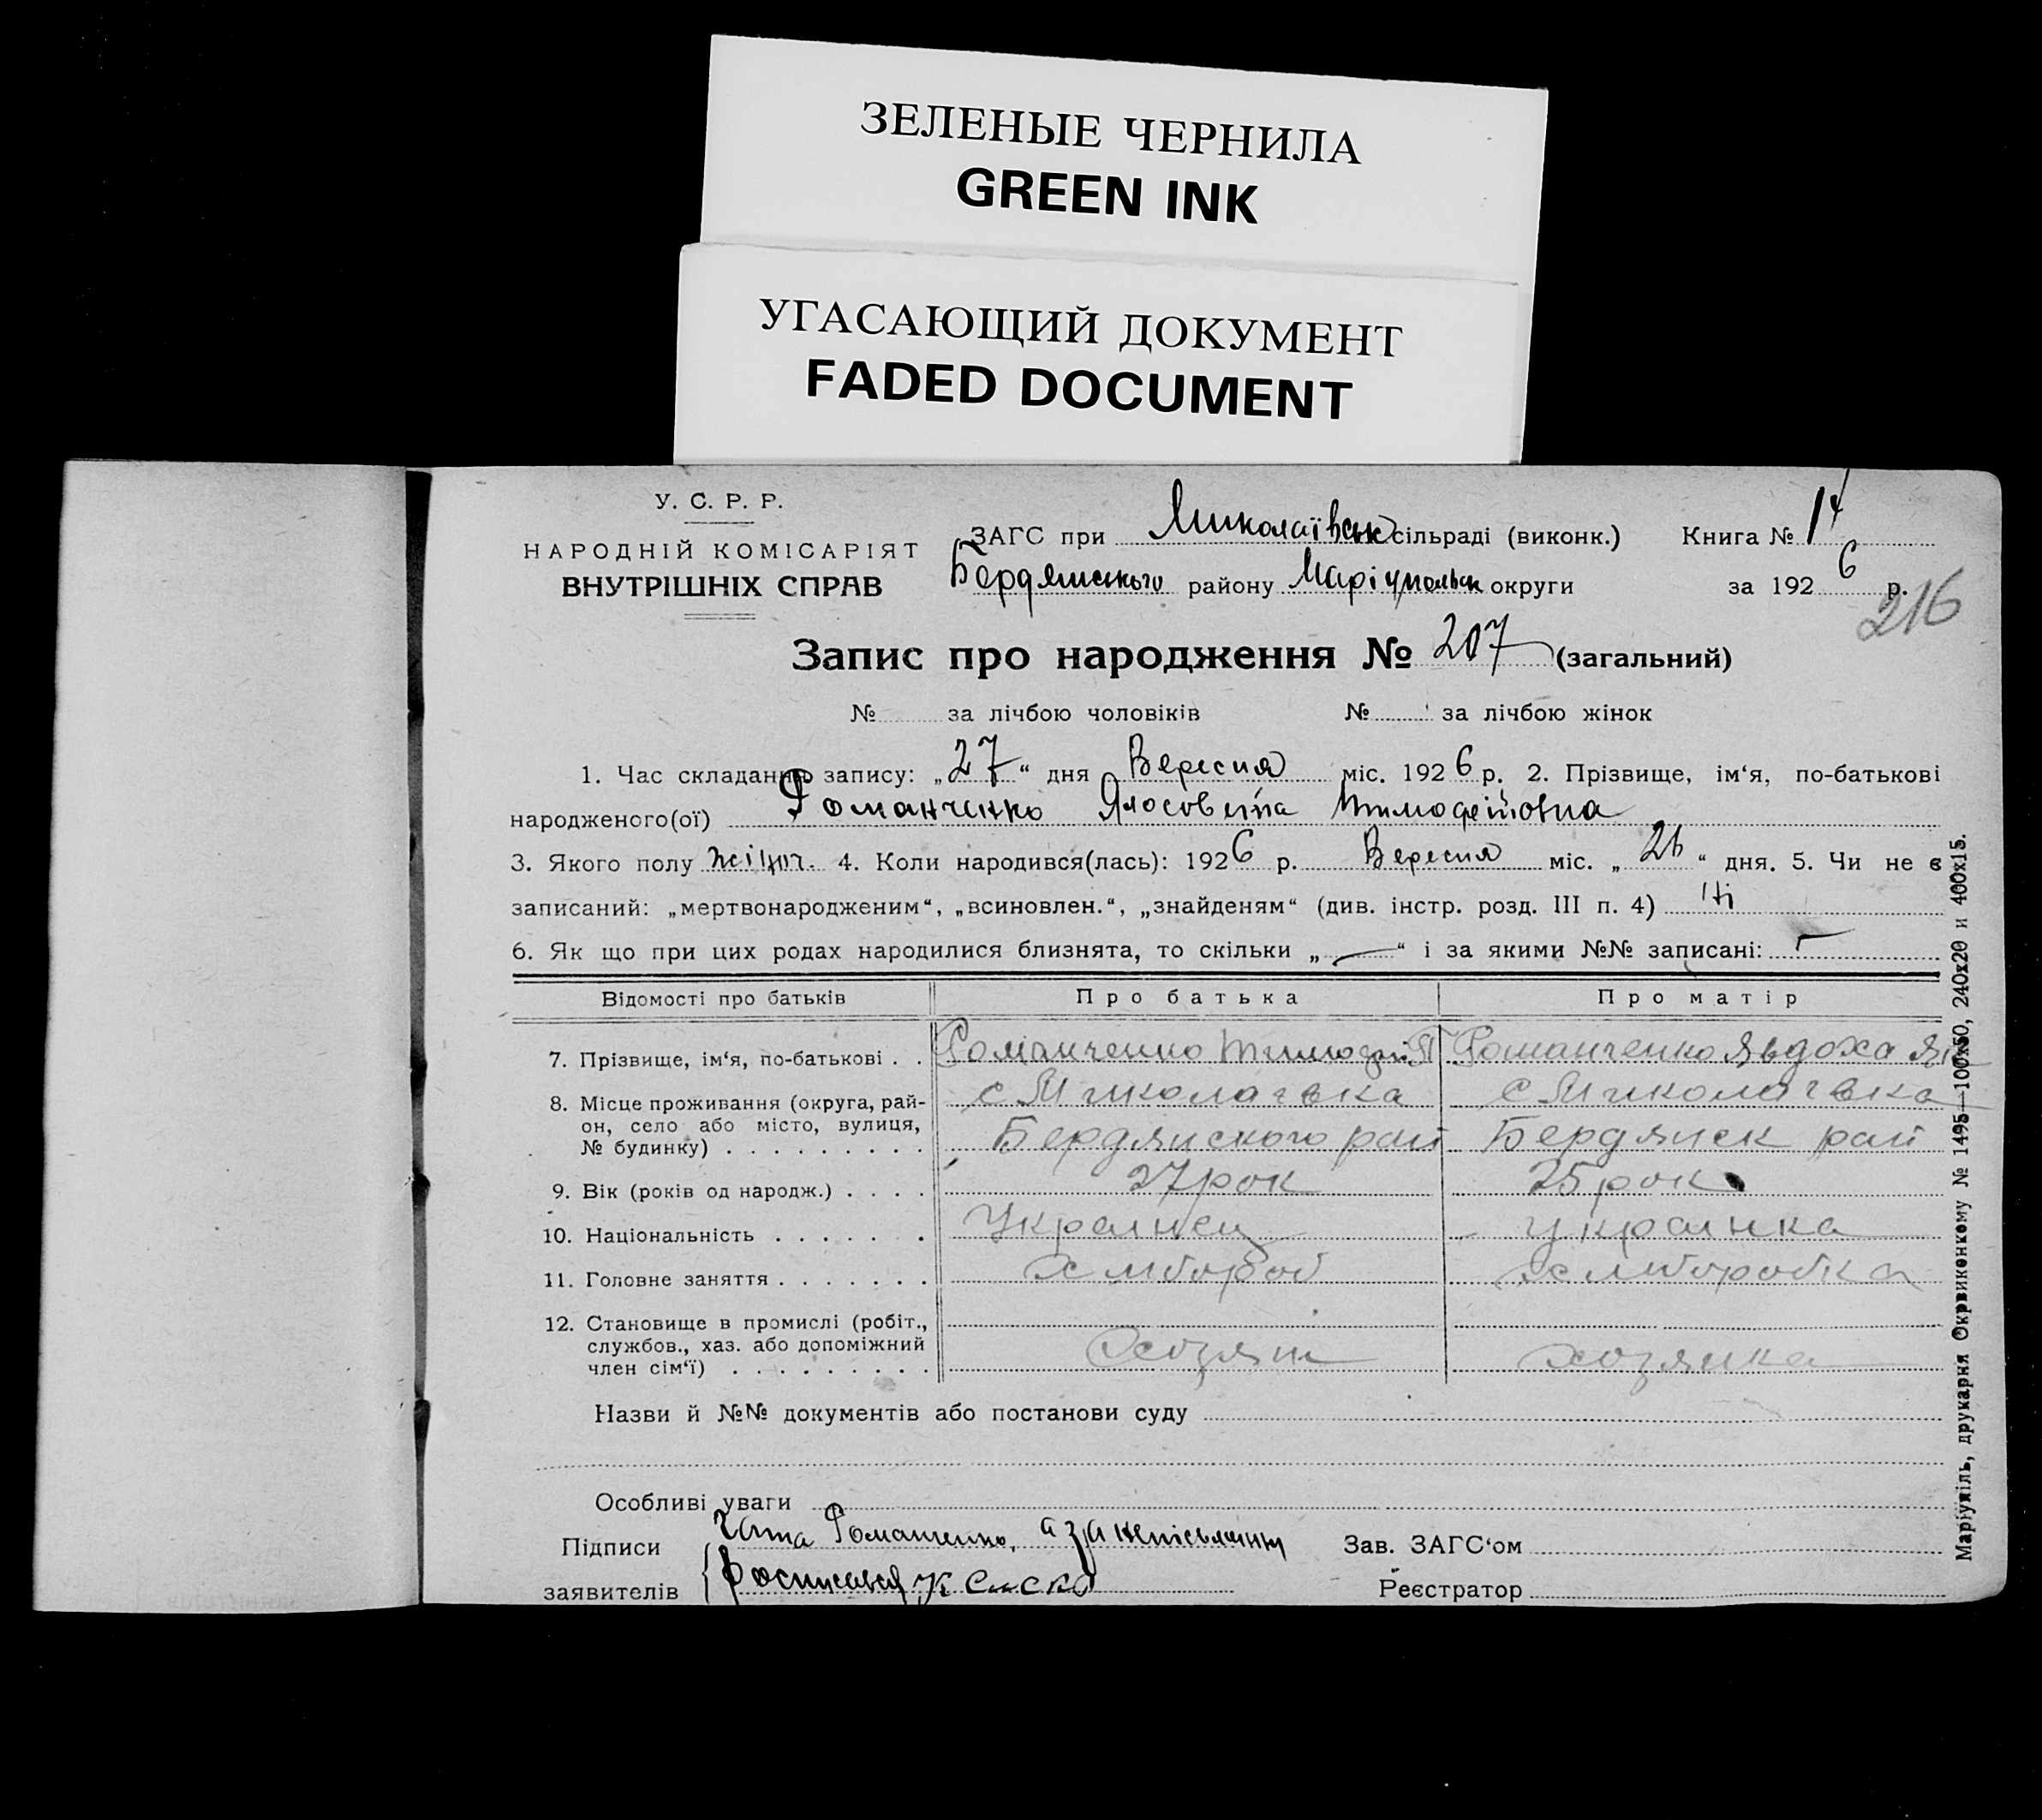 ЗЕЛЕНЫЕ ЧЕРНИЛА
GREEN INK
УГАСАЮЩИЙ ДОКУМЕНТ
FADED DOCUMENT
У. С. Р. Р.
НАРОДНІЙ КОМІСАРІЯТ
ВНУТРІШНІХ СПРАВ
ЗАГС при Миколаївськ сільраді (виконк.) Книга №
Бердянського району Маріупольськ округи за 1926 р.
216
Запис про народження № 207 (загальний)
№ за лічбою чоловіків № за лічбою жінок
1. Час складання запису: „27“ дня Вересня міс. 1926 р. 2. Прізвище, ім‘я, по-батькові
народженого(ої) Романченко Тимофеїовна
3. Якого полу жіноч. 4. Коли народився(лась): 1926 р. Вересня міс. „26“ дня. 5. Чи не є
записаний: „мертвонародженим“, „всиновлен.“, „знайденям“ (див. інстр. розд. III п. 4) Ні
6. Як що при цих родах народилися близнята, то скільки „—“ і за якими №№ записані: —
Відомості про батьків Про батька Про матір
7. Прізвище, ім‘я, по-батькові . . Романченко Романченко Явдоха
8. Місце проживання (округа, рай-
он, село або місто, вулиця,
№ будинку) . . . . . . . . .
с Миколаївка с Миколаївка
Бердянского рай Бердянск рай
9. Вік (років од народж.) . . . . 27 рок 25 рок
10. Національність . . . . . . Украінец украінка
11. Головне заняття . . . . . . . хлибороб хлиборобка
12. Становище в промислі (робіт.,
службов., хаз. або допоміжний
член сім‘ї) . . . . . . . . .
Хозяін хозяйка
Назви й №№ документів або постанови суду
Особливі уваги
Підписи
заявителів
Романченко, а за
Росписався
Зав. ЗАГС‘ом
Реєстратор
Маріупіль, друкарня Окрвиконкому № 1495—100х50, 240х20 и 400х15.